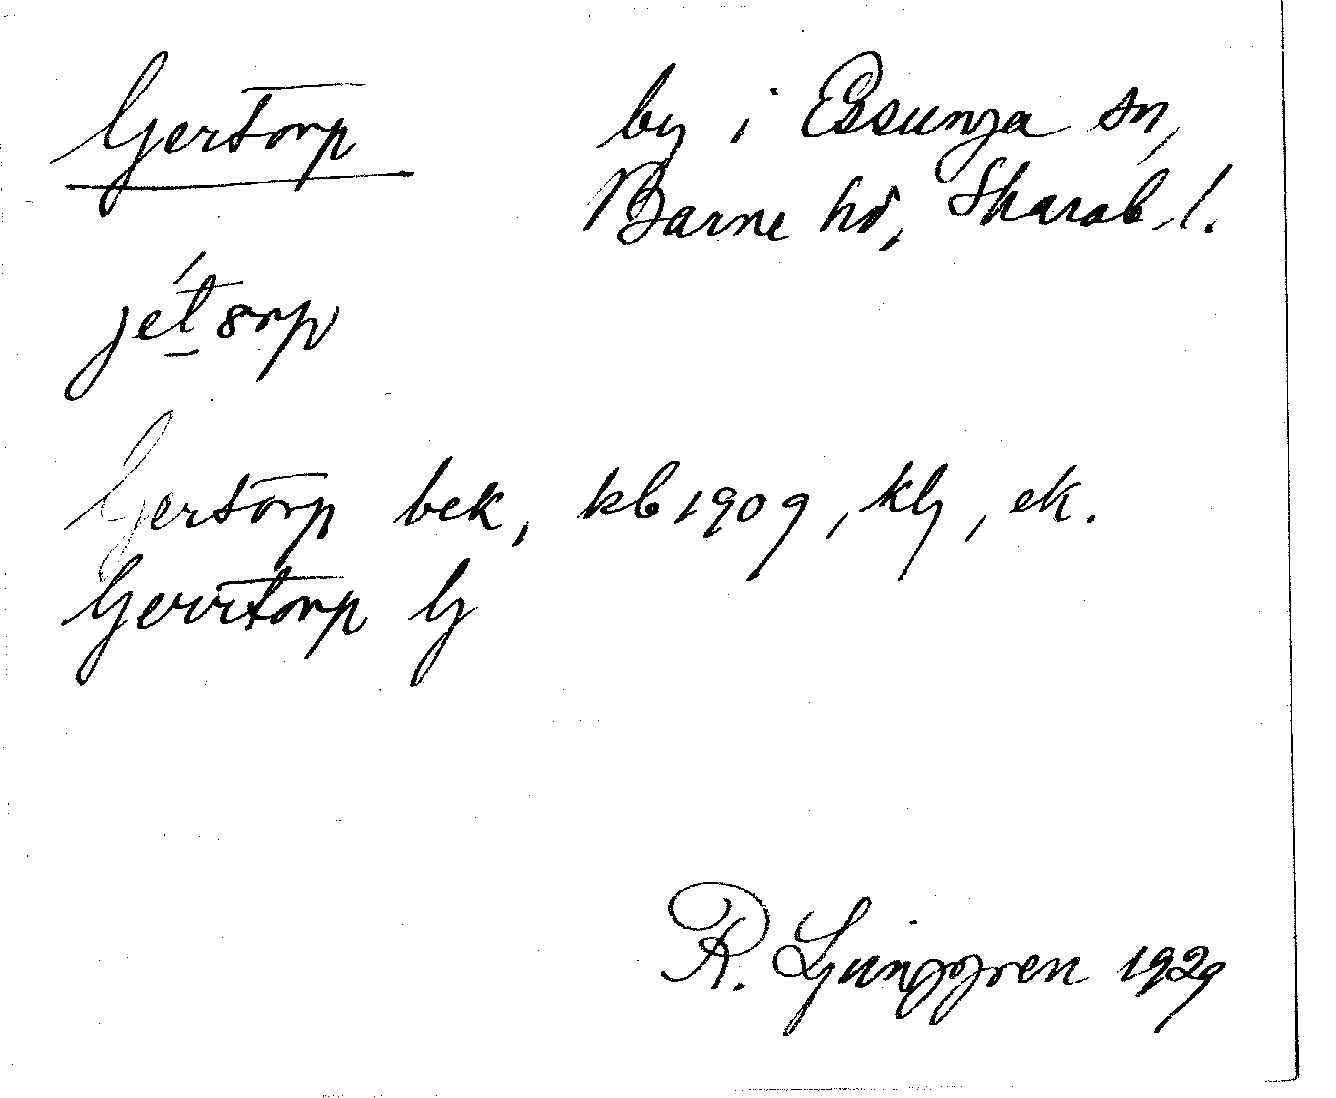 Gertorp by i Essunga sn,
Barne hd, Skarab. l.
Gertorp bek, kb 1909, klj, ek.
Gerrtorp G
R. Ljunggren 1929